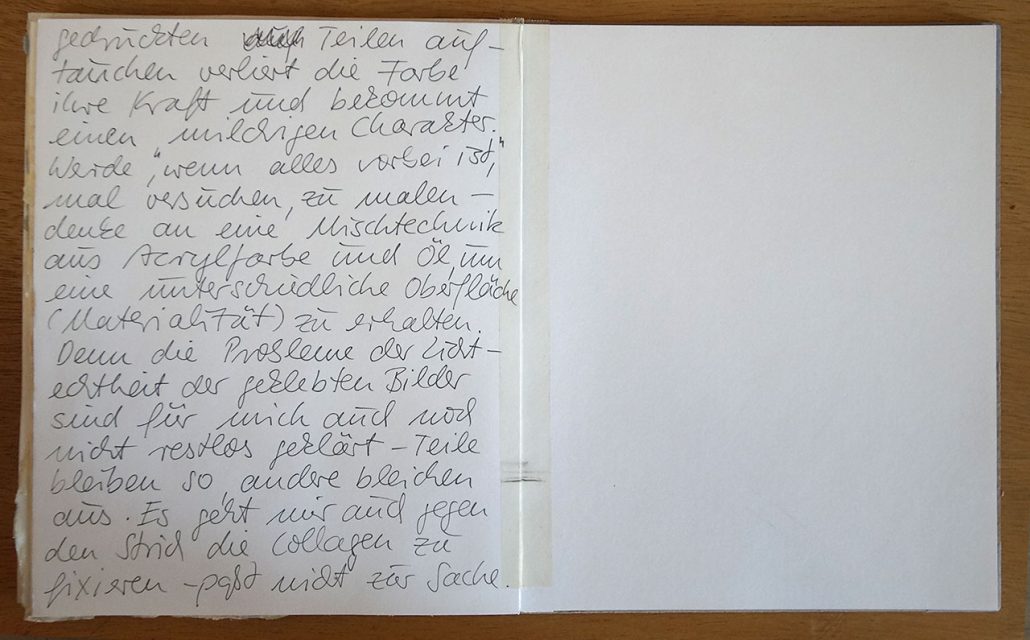 gedruckten Teilen auf-
tauchen verliert die Farbe
ihre Kraft und bekommt
einen milchigen Charakter.
Werde „wenn alles vorbei ist,"
mal versuchen, zu malen –
denke an eine Mischtechnik
aus Acrylfarbe und Öl, um
eine unterschiedliche Oberfläche
(Materialität) zu erhalten.
Denn die Probleme der Licht-
echtheit der geklebten Bilder
sind für mich auch noch
nicht restlos geklärt – Teile
bleiben so, andere bleichen
aus. Es geht mir auch gegen
den Strich die Collagen zu
fixieren – paßt nicht zur Sache.